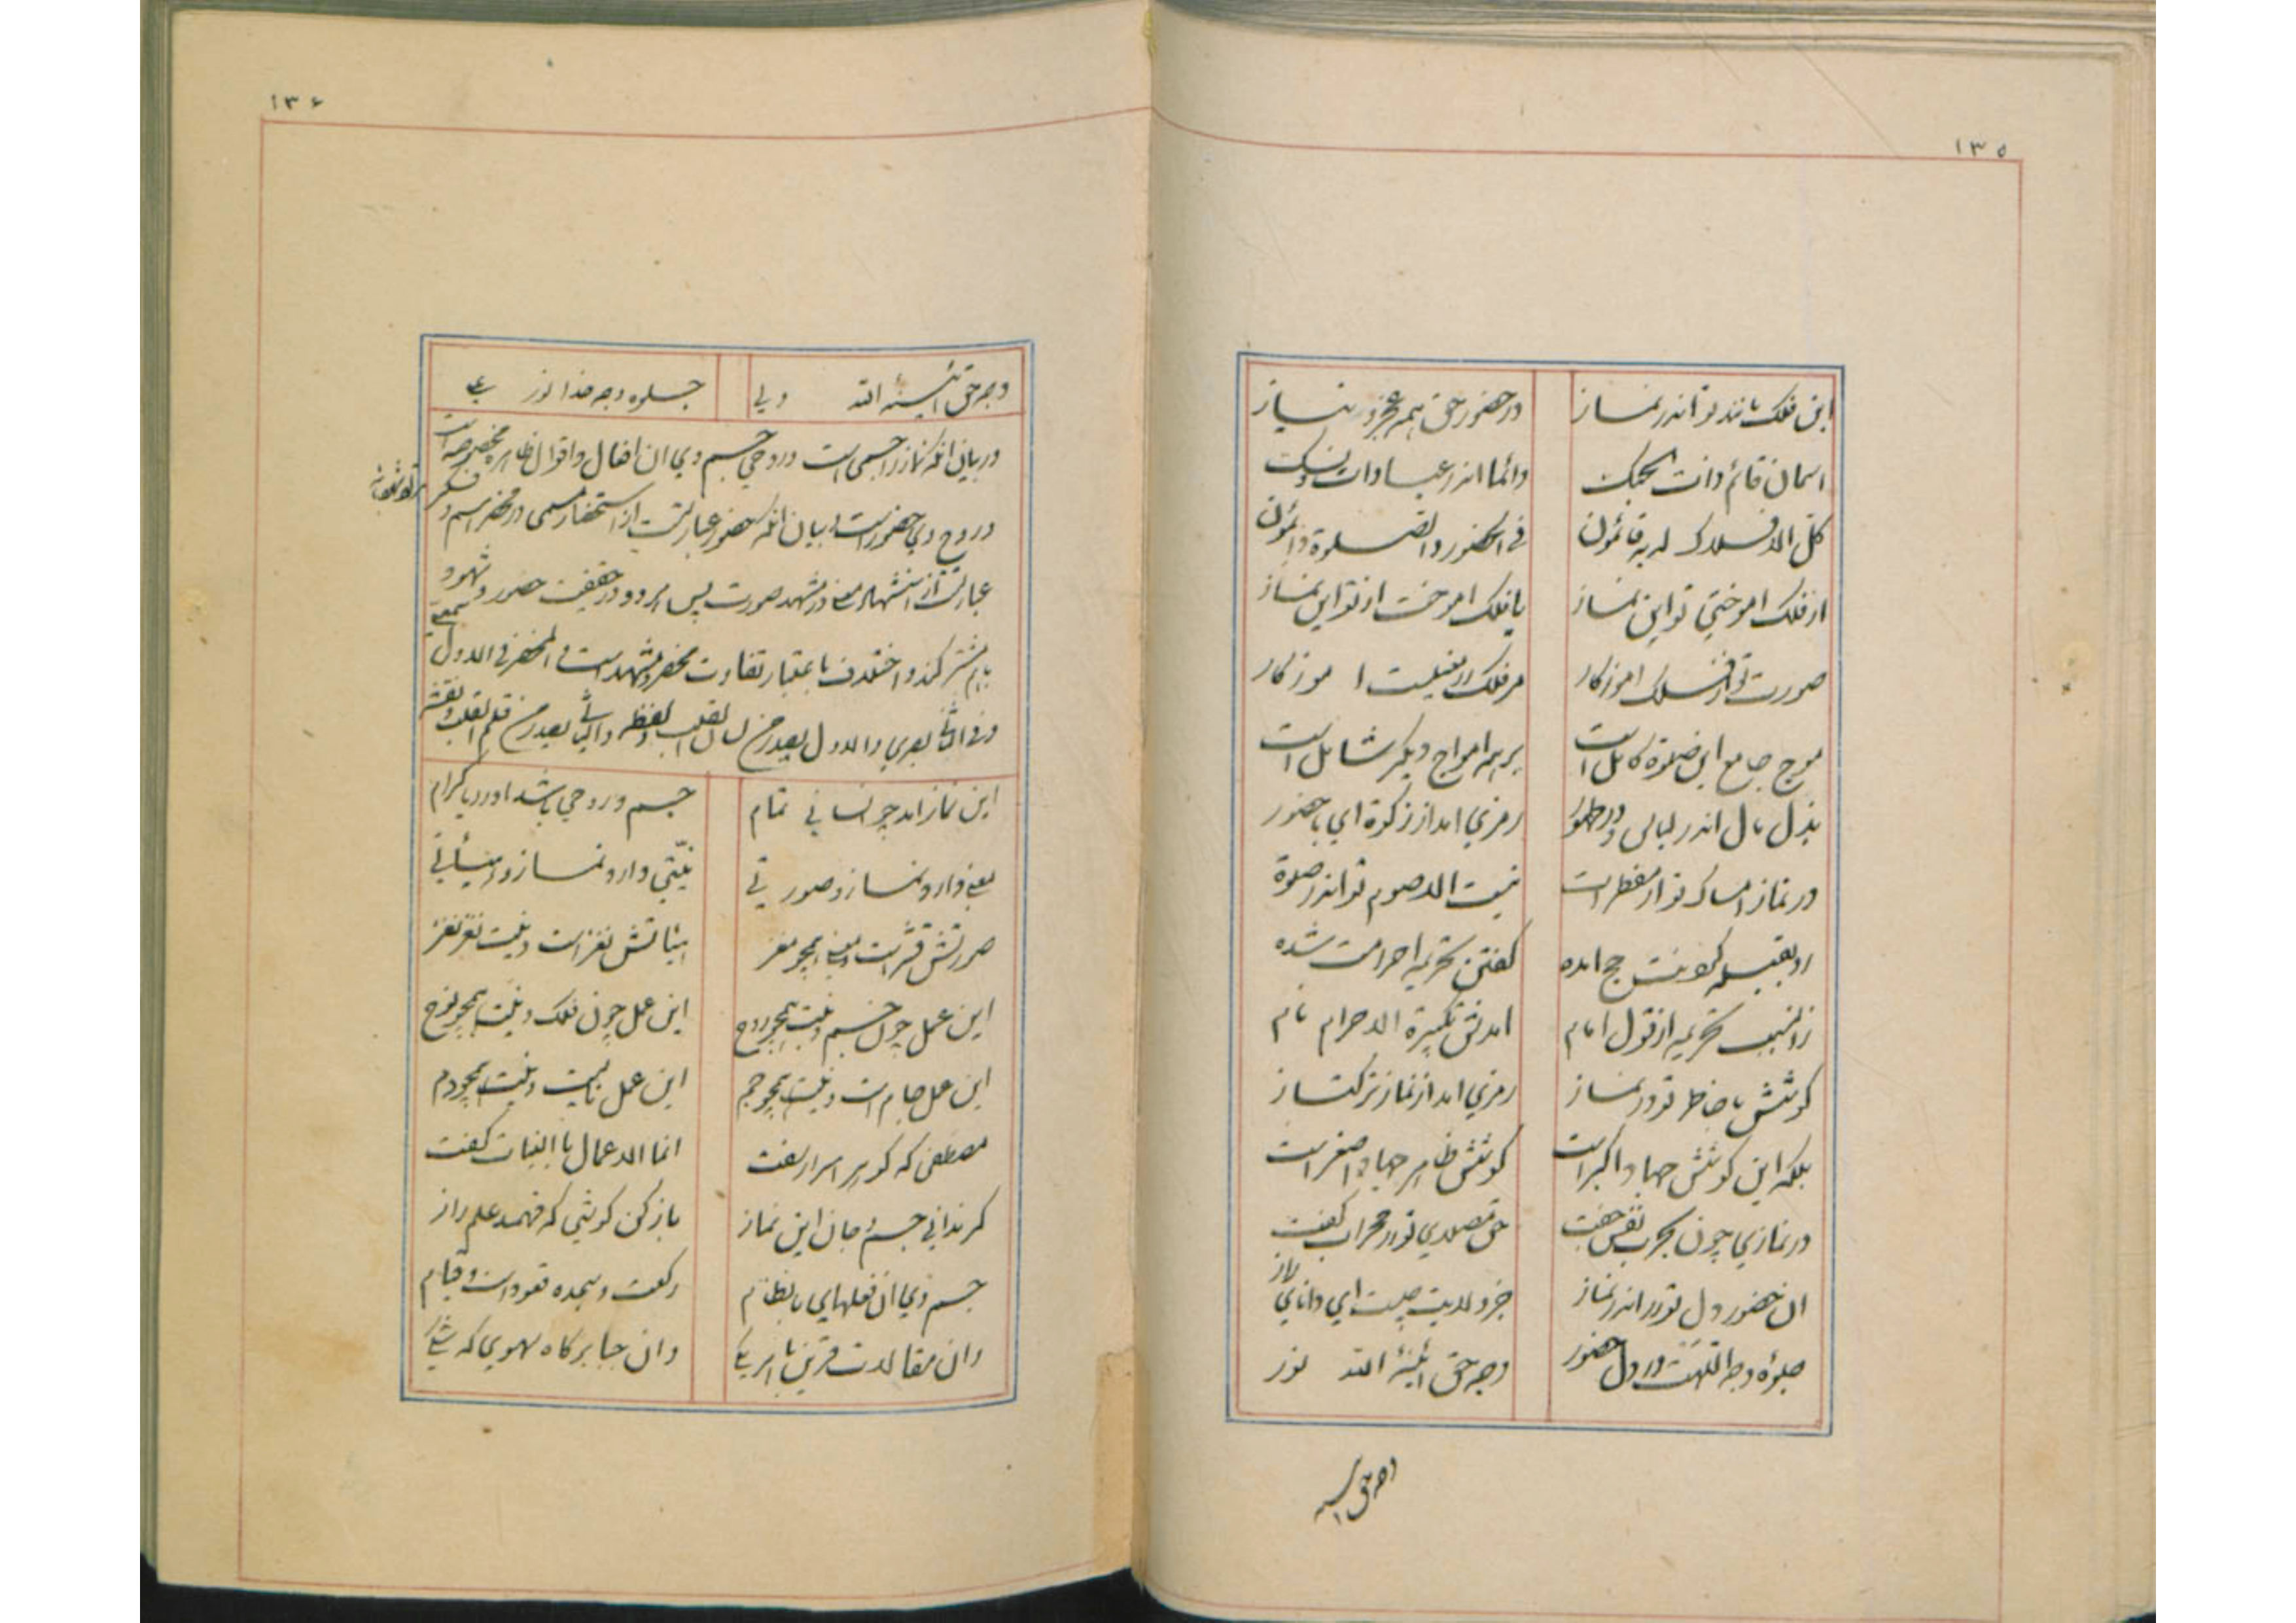 ۱۳۵
این فلک مانند تو اندر نماز در حضور حق همه عجز و نیاز
اسمان قائم ذات الحبک دائما اندر عبادات و نسک
کل الافلاک له به قائمون فی الحضور والصلوة دائمون
از فلک اموختی تو این نماز یا فلک اموخت از تو این نماز
صورت تو از فلک اموزکار مر فلک را معنیت اموزکار
موج جامع این صلوة کامل است بر همه امواج دیگر شامل است
بذل مال اندر لباس و در طهور رمزی امد از زکوة ای با حضور
در نماز امساک تو از مفطرات نیت الا صوم تو اندر صلوة
رو بقبله کردنت حج امده کفتن تحریمه احرامت شده
زانسبب تحریمه از قول امام امدش تکبیرة الاحرام نام
کوشش با خاطر تو در نماز رمزی امد از نماز ترکتاز
بلکه این کوشش جهاد اکبر است کوشش ظاهر جهاد اصغر است
در نمازی چون بحرب نفس جفت حق مصلای تو را محراب کفت
ان حضور دل تو را اندر نماز جز ولایت چیست ای دانای راز
جلوه وجه اللهت در دل حضور وجه حق ائینه الله نور
وجه حق ائینه
۱۳۶
وجه حق ائینه الله ولی جلوه وجه خدا نور علی
در بیان انکه نماز را جسمی است و روحی جسم وی ان افعال و اقوال ظاهره مخصوصه است
و روح وی حضور است و بیان انکه حضور عبارتست از استحضار مسمی در محضر اسم و فکر
عبارتست از استشهاد معنی در مشهد صورت پس هر دو در حقیقت حضور و شهود
باهم مشترکند و اختلاف باعتبار تفاوت محضر و مشهد است فی المحضر فی الاول سمعی
و فی الثانی بصری والاول یصدر من لسان القلب لفظه والثانی یصدر من قلم القلب نقشه
این نماز امد چو انسانی تمام جسم و روحی باشد او را با کرام
معنی دارد نماز و صورتی نیتی دارد نماز و هیأتی
صورتش قشر است و معنی همچو مغز هیأتش نغز است و نیت نغز نغز
این عمل چون جسم و نیت همچو روح این عمل چون فلک و نیت همچو نوح
این عمل جام است و نیت همچو جم این عمل نایست و نیت همچو دم
مصطفی که کوهر اسرار سفت انما الاعمال بالنیات کفت
کر ندانی جسم و جان این نماز باز کن کوشی که فهمد علم راز
جسم وی ان فعلهای با نظام رکعت و سجده قعود است و قیام
وان مقالات قرین با هر یکی وان جبایر کاه سهوی که شکی